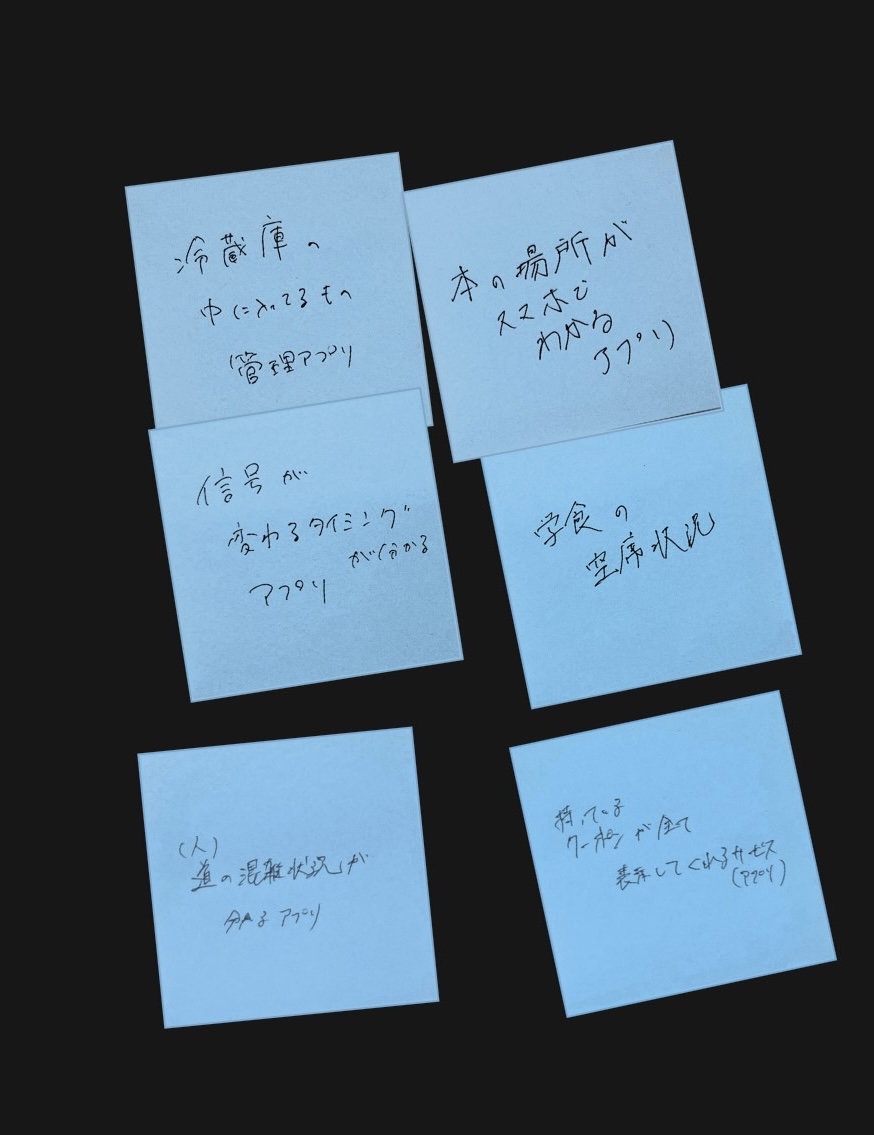 冷蔵庫の
中に入ってるもの
管理アプリ
本の場所が
スマホで
わかる
アプリ
信号が
変わるタイミング
が分かる
アプリ
学食の
空席状況
(人)
道の混雑状況が
分かるアプリ
持っている
クーポンが全て
表示してくれるサービス
(アプリ)